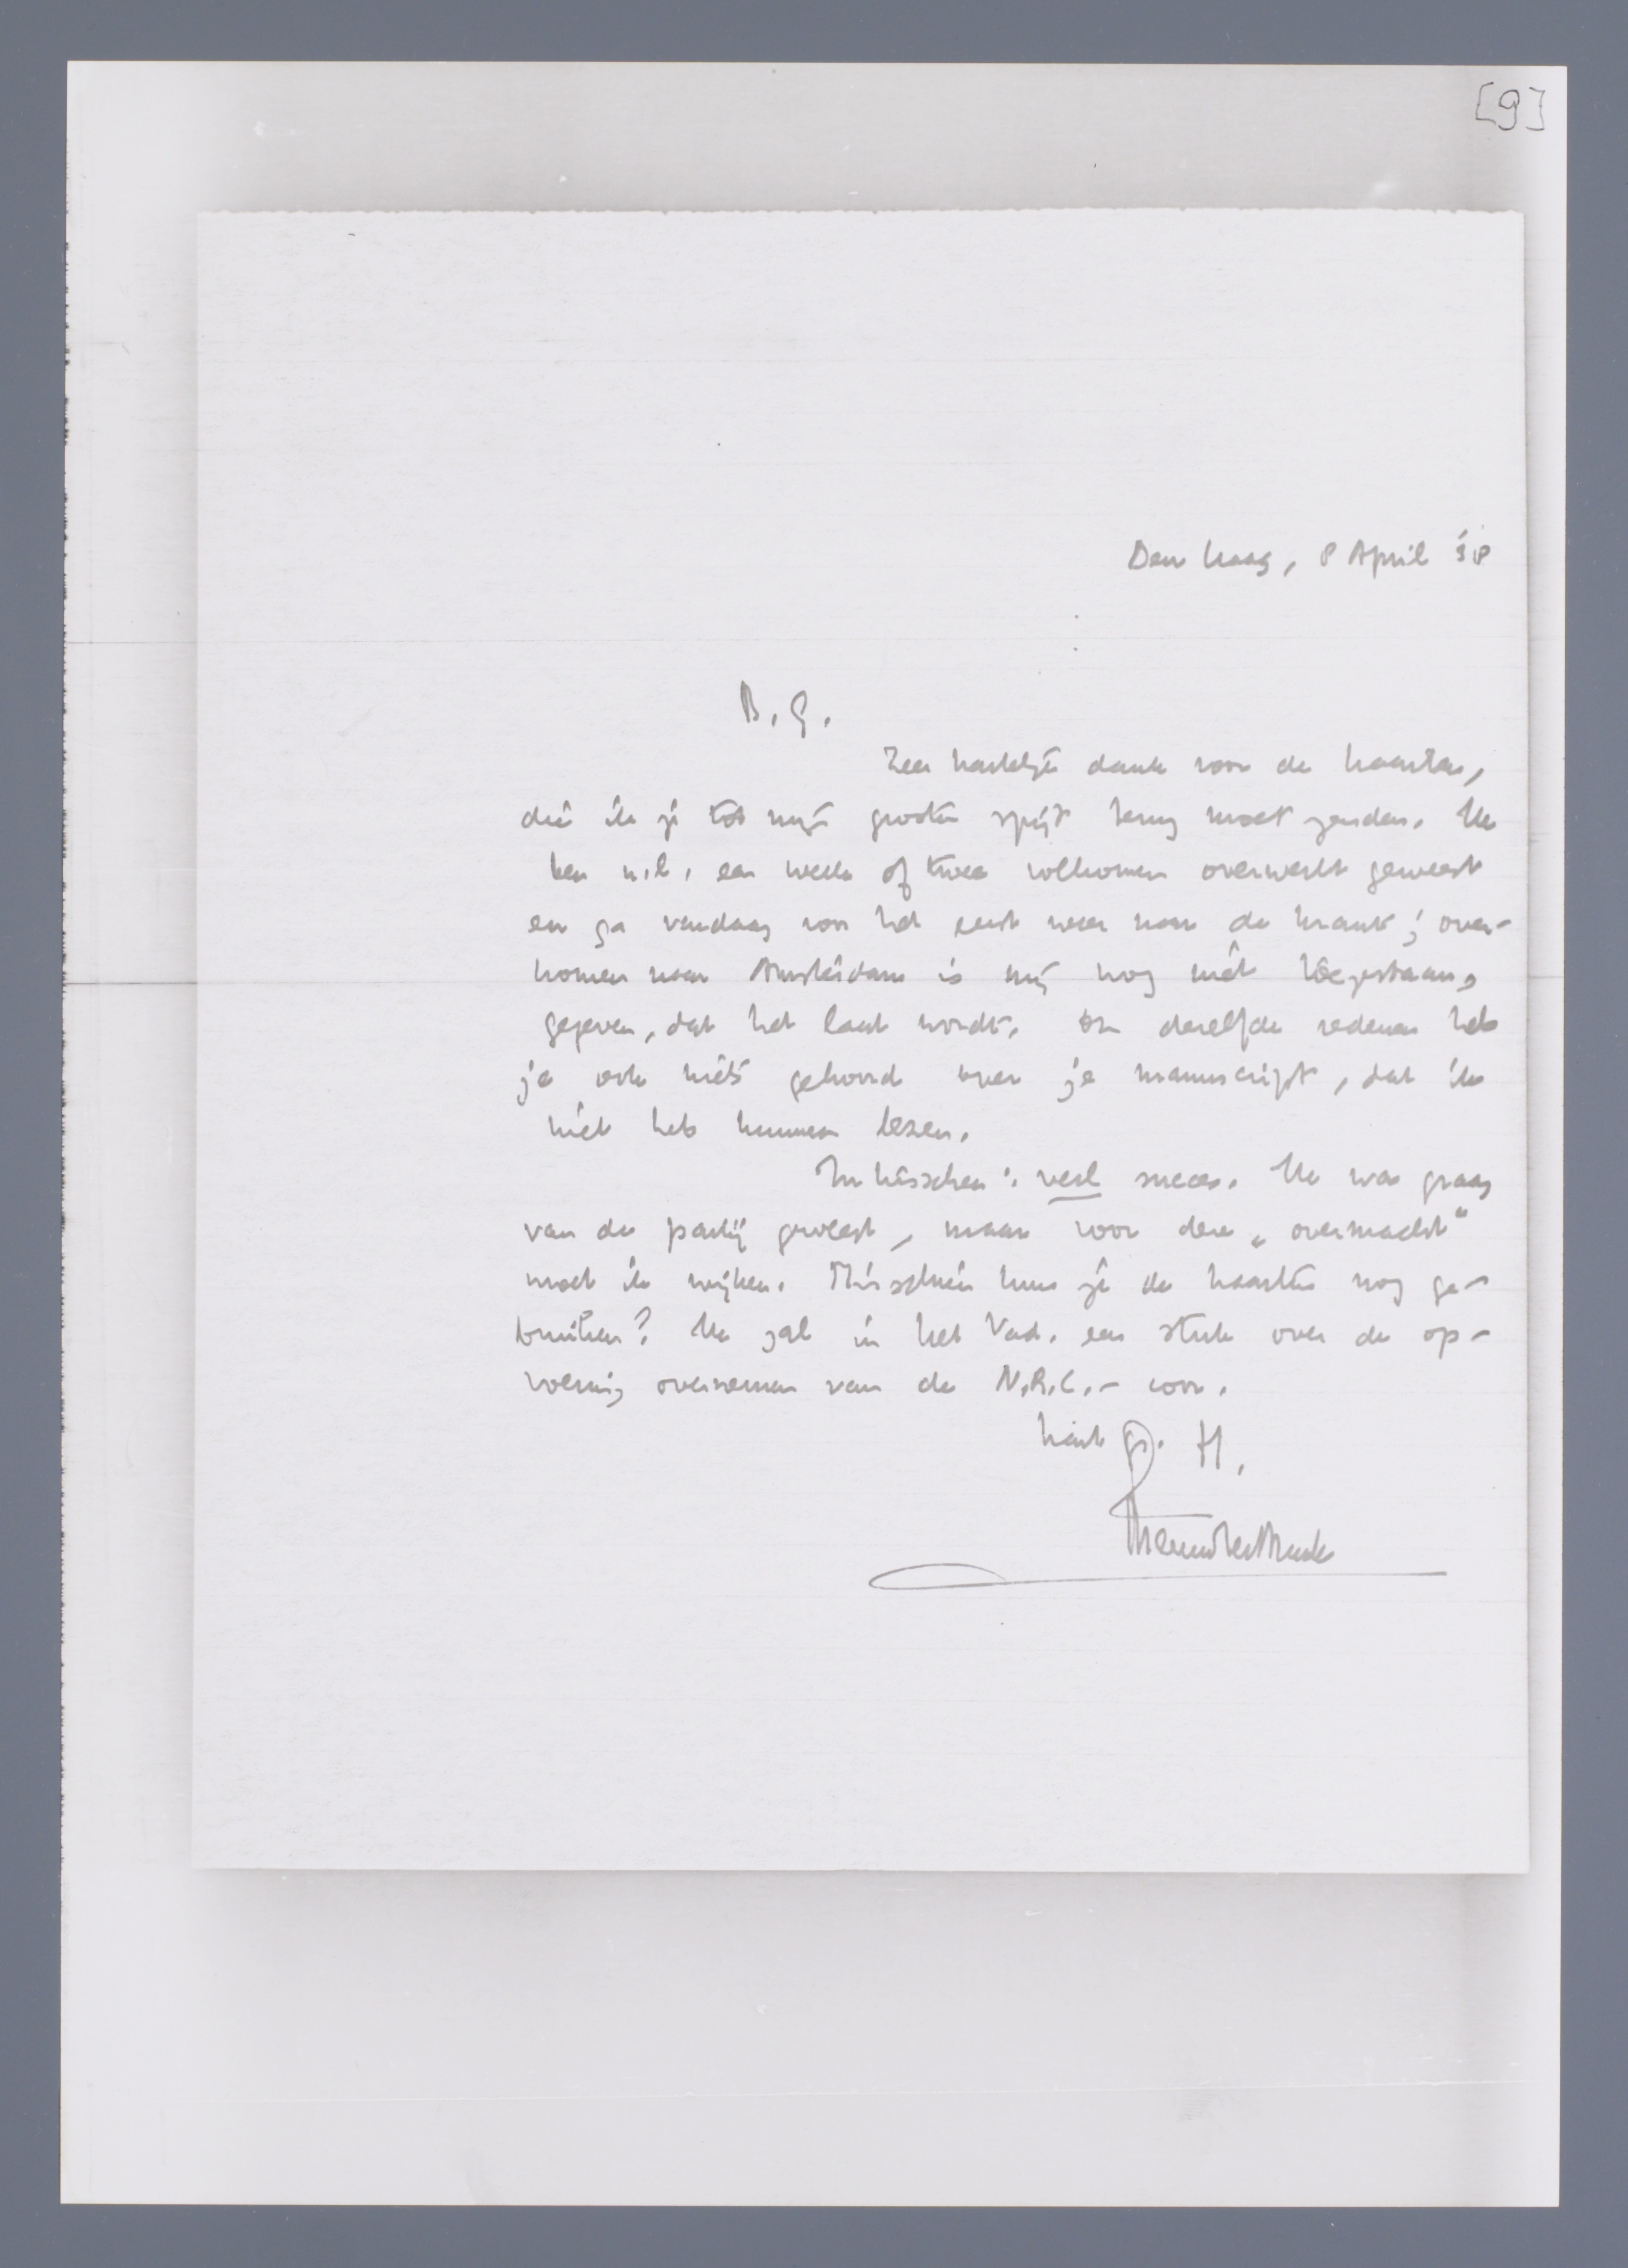 [9]
Den Haag, 8 April '38
B.G.
Zeer hartelijk dank voor de kaarten,
die ik je tot mijn grooten spijt terug moet zenden. Ik
ben n.l. een week of twee volkomen overwerkt geweest
en ga vandaag voor het eerst weer naar de krant; over-
komen naar Amsterdam is mij nog niet toegestaan,
gegeven, dat het laat wordt. Om dezelfde redenen heb
je ook niets gehoord over je manuscript, dat ik
niet heb kunnen lezen.
Intusschen: veel succes. Ik was graag
van de partij geweest, maar voor deze „overmacht"
moet ik wijken. Misschien kun je de kaarten nog ge-
bruiken? Ik zal in het Vad. een stuk over de op-
voering overnemen van de N.R.C.- corr.
hart gr. H.
Menno ter Braak